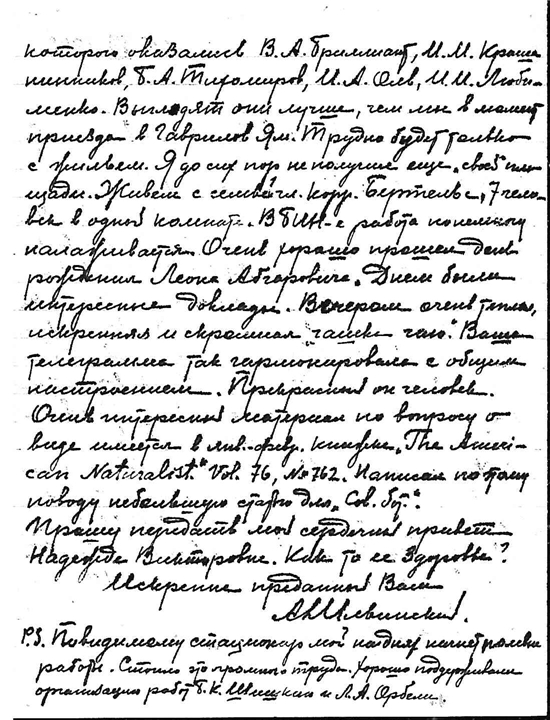 которого оказались В. А. Бриллиант, И. М. Краше
нинников, Б. А. Тихомиров, И. А. Оль, И. И. Люби-
менко. Выглядят они лучше, чем мы в момент
приезда в Гаврилов Ям. Трудно будет только
с жильем. Я до сих пор не получил еще „своей" пло
щади. Живем с семьей чл. корр. Бертельс, 7 чело-
век в одной комнате. В БИН-е работа понемногу
налаживается. Очень хорошо прошел день
рождения Леона Абгаровича. Днем были
интересные доклады. Вечером очень теплая,
искренняя и скромная „чашка чаю". Ваша
телеграмма так гармонировала с общим
настроением. Прекрасный он человек.
Очень интересный материал по вопросу о
виде имеется в янв.-февр. книжке „The Ameri-
can Naturalist." Vol. 76, № 762. Написал по этому
поводу небольшую статью для „Сов. бот."
Прошу передать мой сердечный привет
Надежде Викторовне. Как то ее здоровье?
Искренне преданный Вам
P.S. Повидимому стационар мой на днях начнет
работы. Стоило это громного труда. Хорошо поддерживали
организацию работ Б. К. Шишкин и Л. А. Орбели.